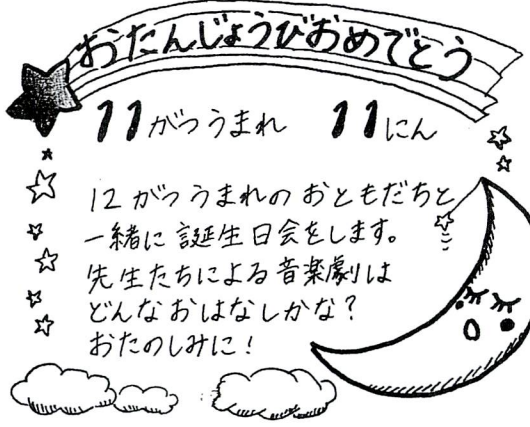 おたんじょうびおめでとう
11がつうまれ 11にん
12がつうまれのおともだちと
一緒に誕生日会をします。
先生たちによる音楽劇は
どんなおはなしかな？
おたのしみに！